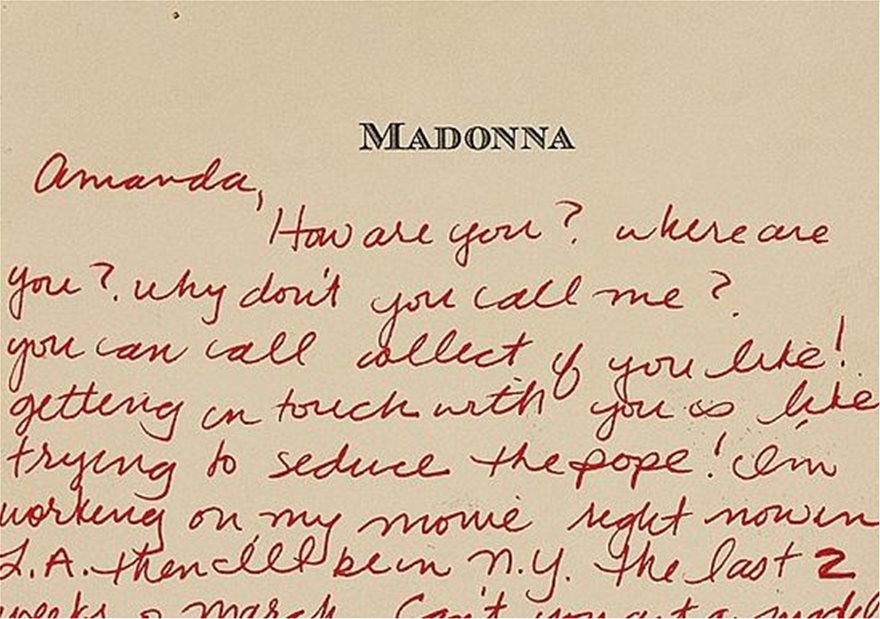 MADONNA
Amanda,
How are you? where are
you?. why don't you call me?
you can call collect if you like!
getting in touch with you is like
trying to seduce the pope! I'm
working on my movie right now in
L.A. then I'll be in N.Y. the last 2
weeks o march. Can't you get a model